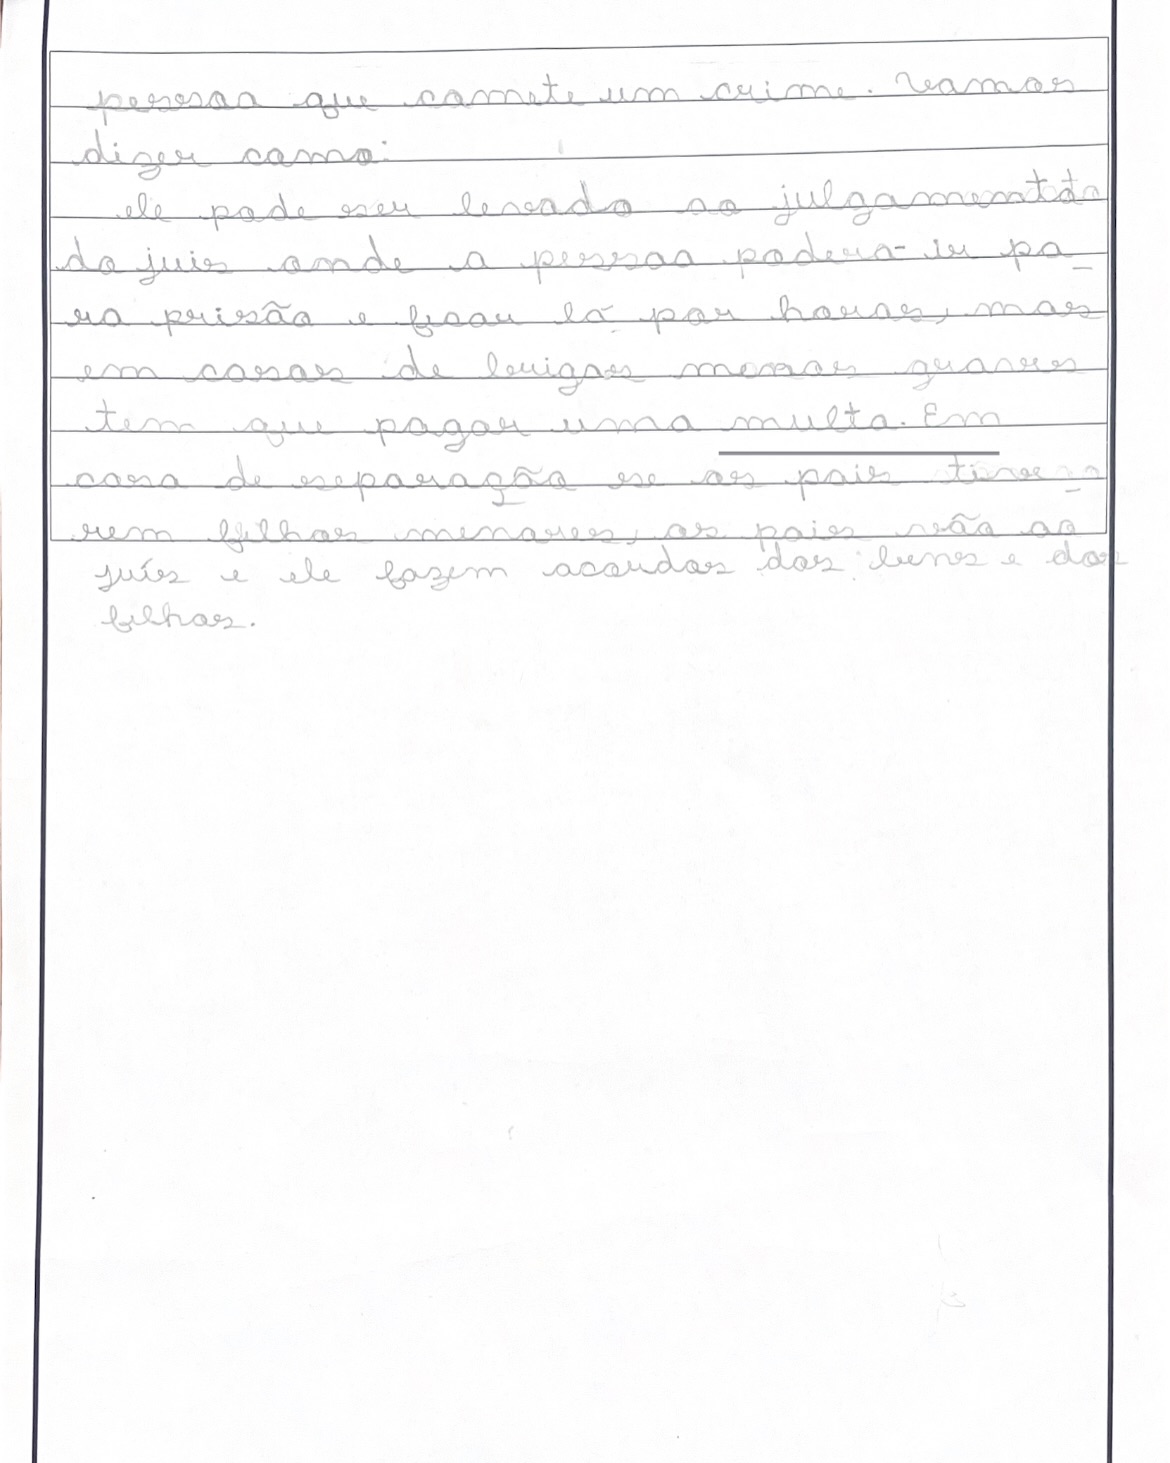 pessoa que comete um crime. Vamos
dizer como:
ele pode ser levado ao julgamento
do juis onde a pessoa poderá ir pa_
ra prisão e ficar lá por horas, mas
em casos de brigas menos graves
tem que pagar uma multa. Em
caso de separação se os pais tive_
rem filhos menores, os pais vão ao
juíz e ele fazem acordos dos bens e dos
filhos.